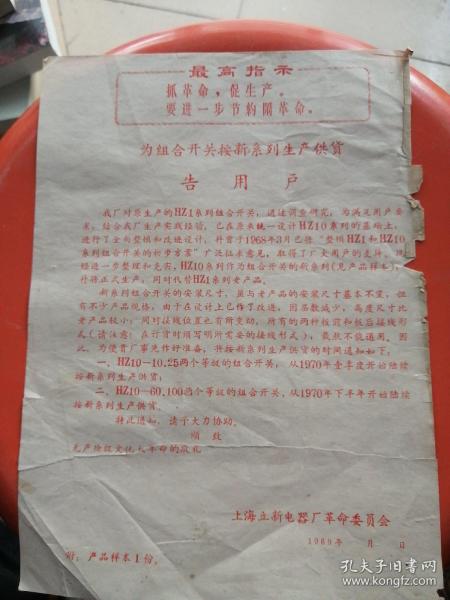 最高指示
抓革命，促生产。
要进一步节约闹革命。
为组合开关按新系列生产供货
告用户
我厂对原生产的HZ1系列组合开关，通过调查研究，为满足用户要
求，结合我厂生产实践经验，已在原来统一设计HZ10系列的基础上，
进行了全面整顿和改进设计，并曾于1968年3月已将“整顿HZ1和HZ10
系列组合开关的初步方案”广泛征求意见，取得了广大用户的支持，现
经进一步整理和充实，HZ10系列作为组合开关的新系列(见产品样本)，
并将正式生产，同时代替HZ1系列老产品。
新系列组合开关的安装尺寸，虽与老产品的安装尺寸基本不变，但
有不少产品规格，由于在设计上已作了改进，因层数减少，高度尺寸比
老产品较小；同时接线位置也有所变动，所有的两种板前和板后接线形
式(请注意：在订货时须写明所需要的接线形式)，截然不能通用。因
此，为使贵厂事先作好准备，并按新系列生产供货的时间通知如下：
一、HZ10—10.25两个等级的组合开关，从1970年壹季度开始陆续
按新系列生产供货；
二、HZ10—60.100两个等级的组合开关，从1970年下半年开始陆续
按新系列生产供货。
特此通知，请予大力协助。
顺致
无产阶级文化大革命的敬礼
上海立新电器厂革命委员会
1969年 月 日
附：产品样本1份。
孔夫子旧书网